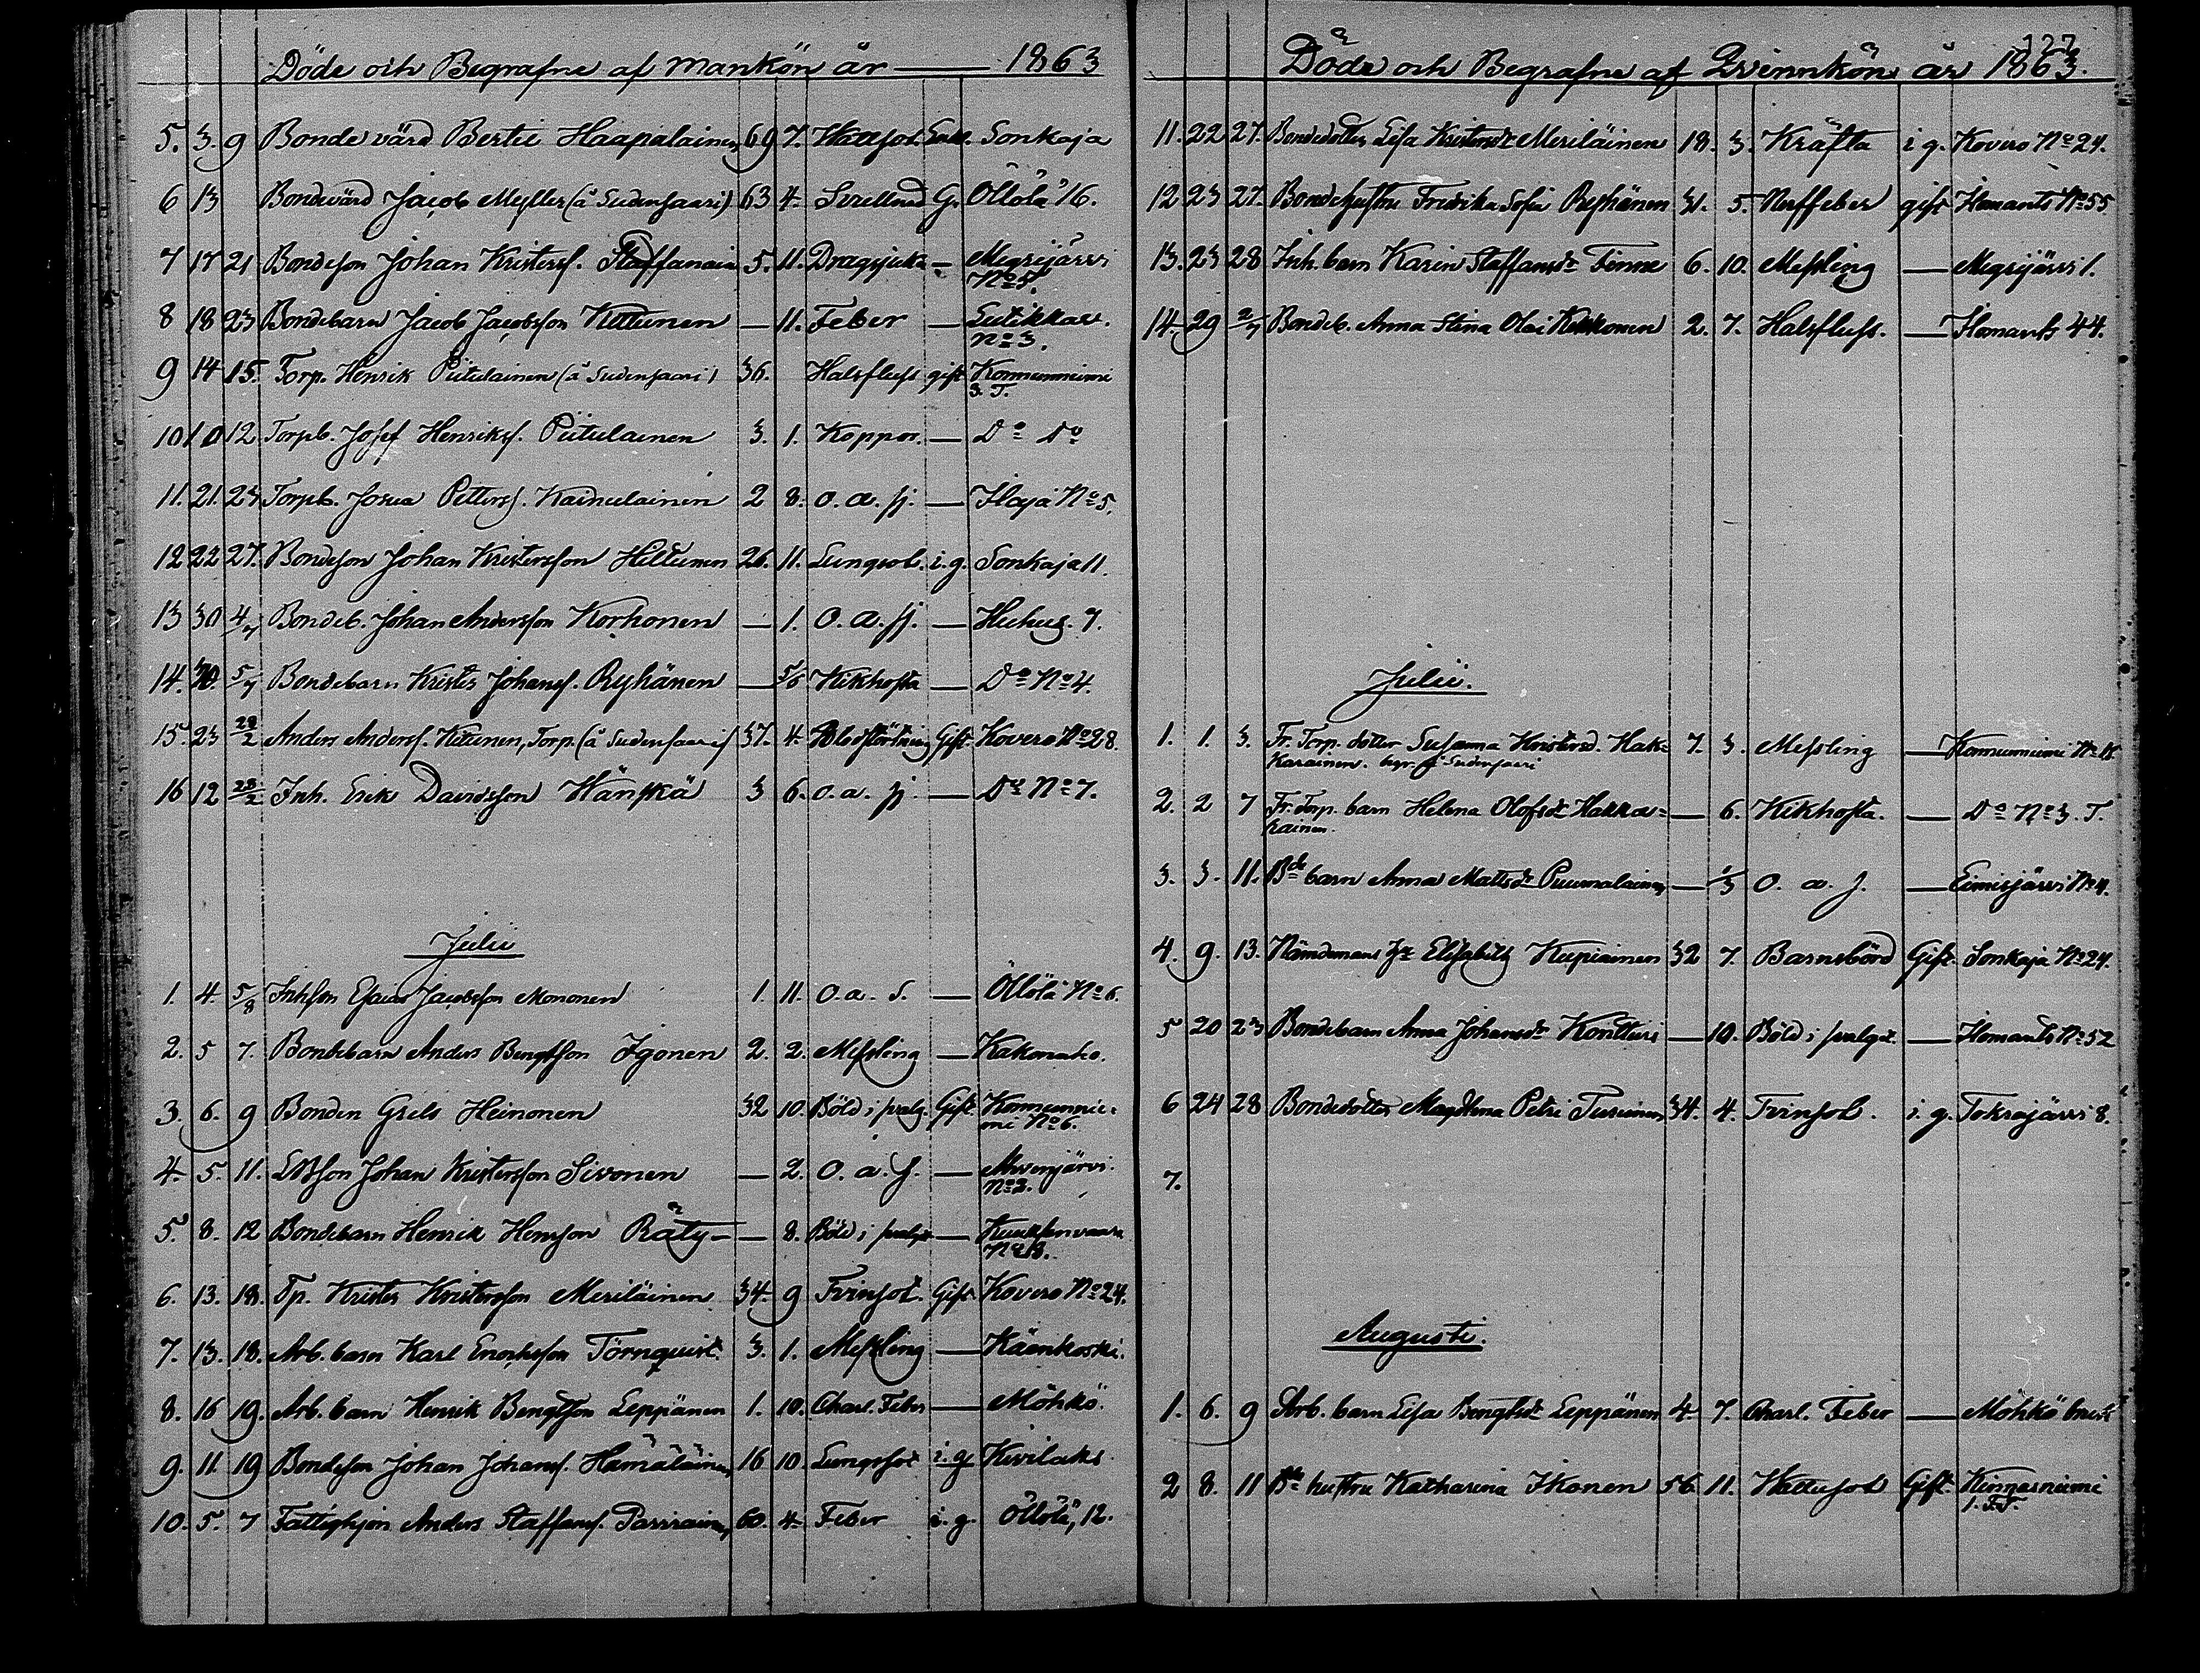 Döde och Begrafne af Mankön år — 1863
5. 3. 9 Bonde värd Bertil Haapalainen 69 7. Sonkaja
6 13 Bondevärd Jacob Meller (å Sudensaari) 63 4. Svullnad G. Öllölä 16.
7 17 21 Bondeson Johan Kristerss. Staffanain 5. 11. Dragsjuka — Megrijärvi
No 5.
8 18 23 Bondebarn Jacob Jacobsson Kettunen — 11. Feber — Lutikkav.
No 3.
9 14 15. Torp. Henrik Piitulainen (å Sudensaari) 36. Halsfluss gift Konnunniemi
3. T.
10 10 12 Torpb. Josef Henrikss. Piitulainen 3. 1. Koppor. — Do Do
11. 21. 23 Torpb. Josua Petterss. Kainulainen 2 8. o. a. sj. — Ilaja No 5.
12 22 27. Bondeson Johan Kristersson Hiltunen 26. 11. Lungsot. i. g. Sonkaja 11.
13 30 4/7 Bondeb. Johan Andersson Korhonen — 1. O. a. sj. — Huhus. 7.
14. 30. 5/7 Bondebarn Krister Johanss. Ryhänen — 5/6 Kikhosta — Do No 4.
15 23 22/2 Anders Anderss. Kitunen, Torp. (å Sudensaari) 37. 4. Blodstörtning Gift. Kovero No 28.
16 12 23/2 Inh. Erik Davidsson Hänskä 3 6. o. a. sj — Do No 7.
Julii
1. 4. 5/8 Inhson Esaias Jacobsson Mononen 1. 11. O. a. S. — Öllölä No 6.
2. 5 7. Bondebarn Anders Bengtsson Igonen 2. 2. Messling — Kakonaho.
3. 6. 9 Bonden Grels Heinonen 32 10. Böld i svalg. Gift. Konnunnie=
mi No 6.
4. 5. 11. Johan Kristersson Sivonen — 2. O. a. J. — järvi.
No 2.
5. 8. 12 Bondebarn Henrik Henrsson Räty — — 8. Böld i svalget — Kuuksenvaara
6. 13. 18. Tp. Krister Kristersson Meriläinen 34. 9 Tvinsot. Gift. Kovero No 24.
7. 13. 18. Arb. barn Karl Enochsson Törnquist. 3. 1. Messling — Käenkoski.
8. 16 19. Arb. barn Henrik Bengtsson Leppänen 1. 10. Charl. Feber — Möhkö.
9. 11. 19 Bondeson Johan Johanss. Hämäläinen 16 10. Lungsot i. g. Kivilaks.
10. 5. 7 Fattighjon Anders Staffanss. Parviainen 60. 4. Feber i. g. Öllölä, 12.
127
Döde och Begrafne af Qvinnkön år 1863.
11. 22 27. Bondedotter Lisa Kristersdr Meriläinen 18. 3. Kräfta i g. Kovero No 24.
12 23 27. Bondehustru Fredrika Sofia Ryhänen 31. 5. Nerffeber gift Ilomants No 55.
13. 23 28 Inh. barn Karin Staffansdr Finne 6. 10. Messling — Megrijärvi 1.
14. 29 2/7 Bondeb. Anna Stina Olai Kokkonen 2. 7. Halsfluss. — Ilomants 44.
Julii.
1. 1. 3. Fr. Torp. dotter Susanna Kristersd. Hak=
karainen. begr. på Sudensaari 7. 3. Messling — Konnunniemi
2. 2 7 Fr. Torp. barn Helena Olofsdr Hakka=
rainen. — 6. Kikhosta. — Do No 3. T.
3. 3. 11. Bde barn Anna Mattsdr Puumalainen — 1/3 O. a. J. — Eimisjärvi No 4.
4. 9. 13. Nämdemans hu Elisabeth Kupiainen 32 7. Barnsbörd Gift. Sonkaja No 24.
5 20 23 Bondebarn Anna Johansdr Kontturi — 10. Böld i svalget. — Ilomants No 52
6 24 28 Bondedotter Magdlena Petri Turunen 34. 4. Tvinsot. i. g. Tokrajärvi 8.
7.
Augusti.
1. 6. 9 Arb. barn Lisa Bengtsdr Leppänen 4. 7. Charl. Feber — Möhkö bruk
2 8. 11 Bde hustru Katharina Ikonen 56. 11. Vattusot Gift.